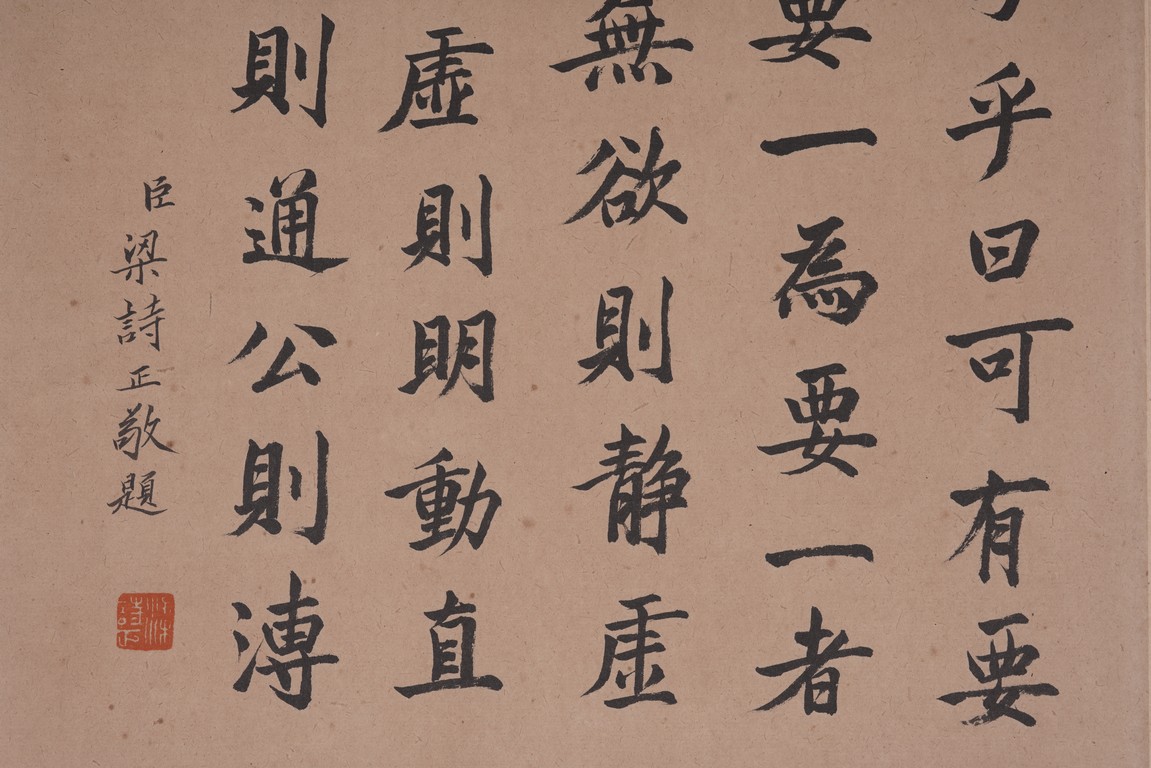 乎曰可有要
要一為要一者
無欲則静虛
虛則明動直
則通公則溥
臣梁詩正敬題